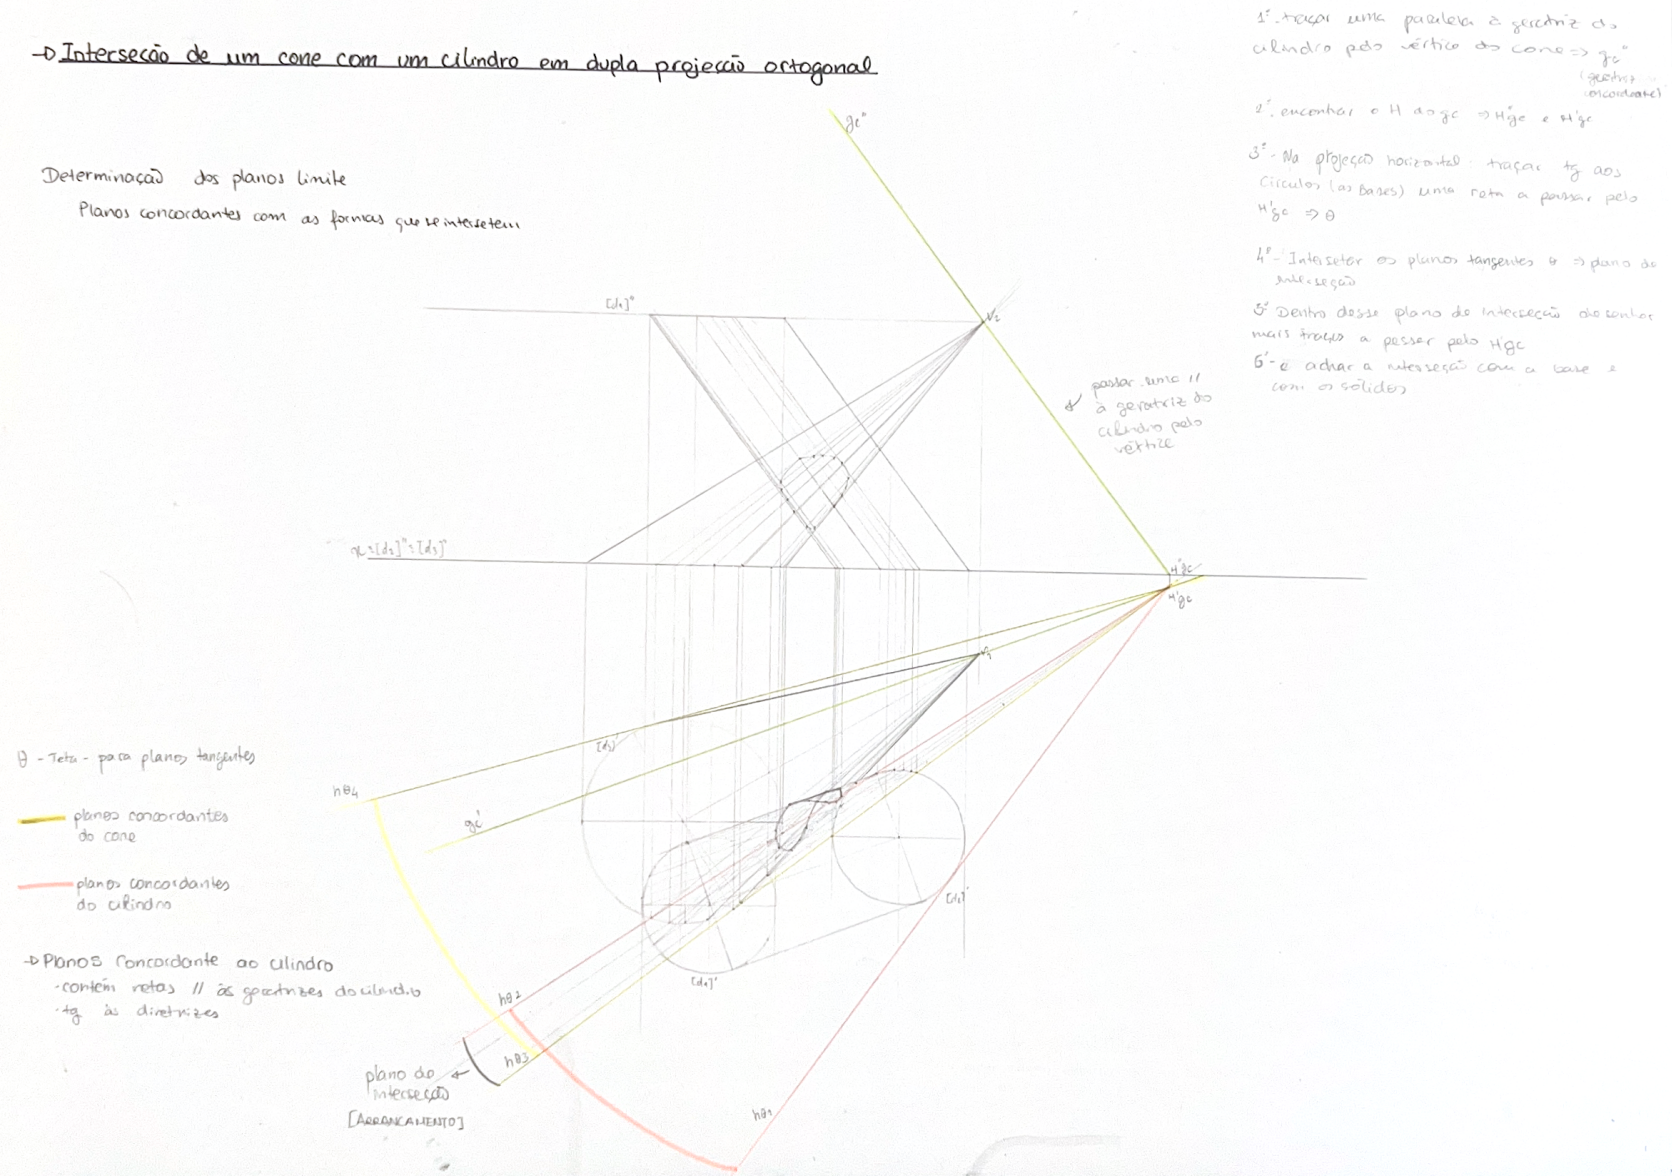 → Interseção de um cone com um cilindro em dupla projeção ortogonal
Determinação dos planos limite
Planos concordantes com as formas que se intersetem
1º- traçar uma paralela à geratriz do
cilindro pelo vértice do cone ⇒ gc"
(geratriz
concordante)
2º- encontrar o H da gc ⇒ H"gc e H'gc
3º- Na projeção horizontal: traçar tg aos
círculos (as bases) uma reta a passar pelo
H'gc ⇒ θ
4º- Intersetar os planos tangentes θ ⇒ plano de
interseção
5º Dentro desse plano de interseção desenhar
mais traços a passar pelo H'gc
6º- é achar a interseção com a base e
com os sólidos
gc"
[d1]"
V2
passar uma //
à geratriz do
cilindro pelo
vértice
x≡[d2]"≡[d3]"
H"gc
H'gc
V1
[d3]'
θ - Teta - para planos tangentes
hθ4
gc'
planos concordantes
do cone
planos concordantes
do cilindro
[d2]'
[d1]'
→ Planos Concordante ao cilindro
·contêm retas // às geratrizes do cilindro
·tg às diretrizes
hθ2
hθ3
plano de
interseção
[ARRANCAMENTO]
hθ1